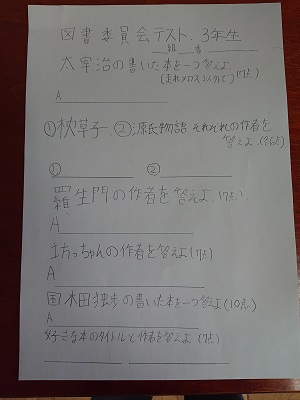 図書委員会テスト.3年生
組 番
太宰治の書いた本を一つ答えよ
(走れメロス以外で)(7点)
A
①枕草子.②源氏物語 それぞれの作者を
答えよ(各6点)
① ②
羅生門の作者を答えよ.(7点)
A
坊っちゃんの作者を答えよ(7点)
A
国木田独歩の書いた本を一つ答えよ(10点)
A
好きな本のタイトルと作者を答えよ(7点)